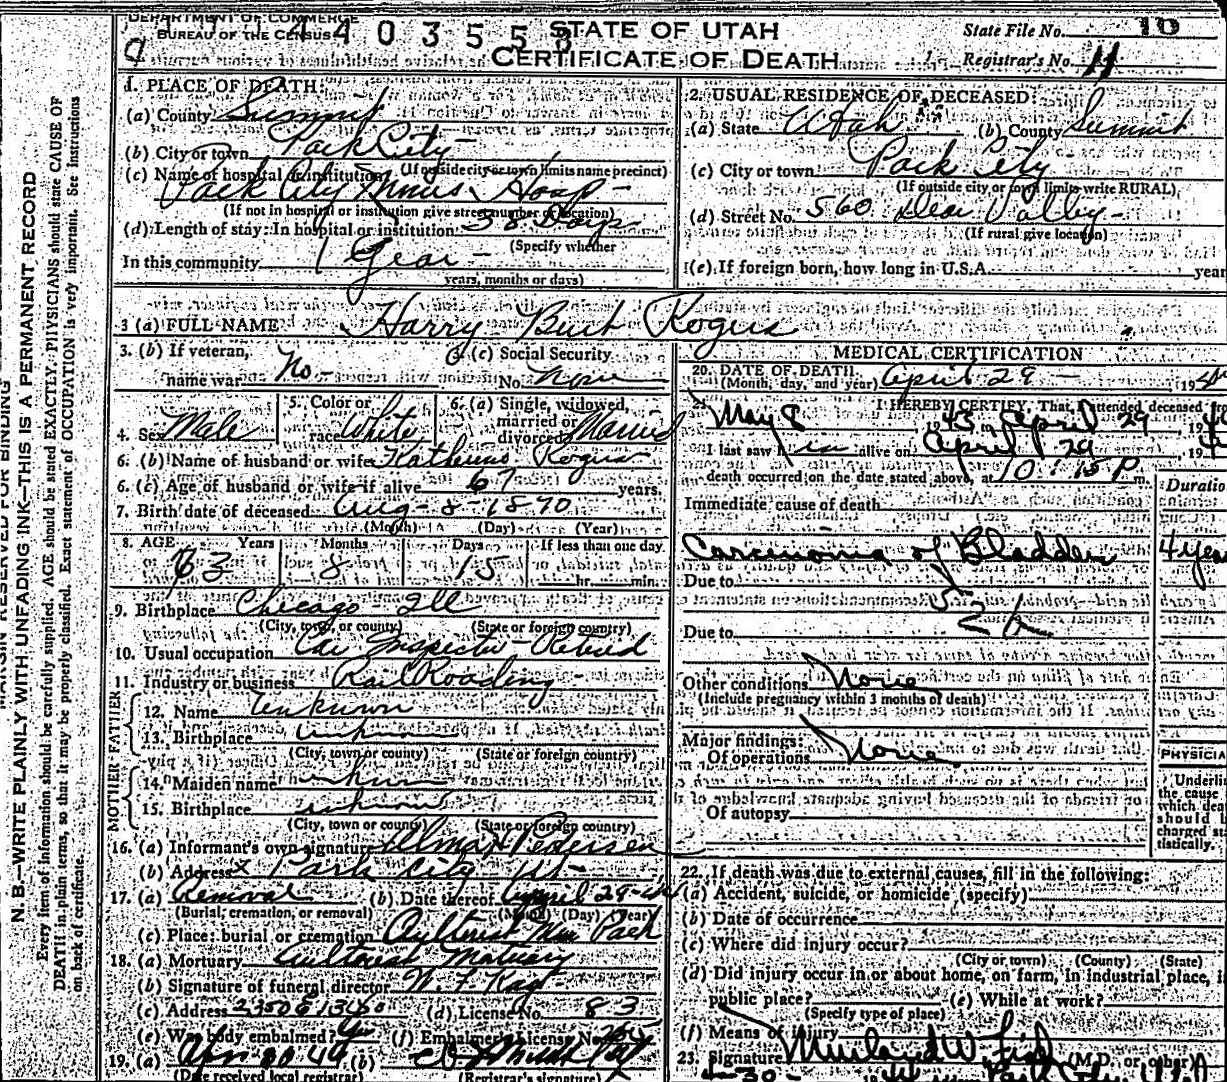 DEPARTMENT OF COMMERCE
BUREAU OF THE CENSUS
4 0 3 5 5 8
STATE OF UTAH
CERTIFICATE OF DEATH
State File No. 10
Registrar's No. 11
1. PLACE OF DEATH:
(a) County Summit
(b) City or town Park City
(If outside city or town limits name precinct)
(c) Name of hospital or institution
Park City Miners Hosp
(If not in hospital or institution give street number or location)
(d) Length of stay: In hospital or institution 58 Days
(Specify whether
In this community 1 Year
years, months or days)
2. USUAL RESIDENCE OF DECEASED:
(a) State Utah (b) County Summit
(c) City or town Park City
(If outside city or town limits write RURAL)
(d) Street No. 560 Dear Valley
(If rural give location)
(e) If foreign born, how long in U.S.A. year
3 (a) FULL NAME Harry Burt Rogers
3. (b) If veteran, name war No
(c) Social Security No. None
4. Sex Male
5. Color or race White
6. (a) Single, widowed, married or divorced Married
6. (b) Name of husband or wife Rogers
6. (c) Age of husband or wife if alive 67 years.
7. Birth date of deceased Aug-8-1870
(Month) (Day) (Year)
8. AGE Years Months Days If less than one day
3 8 15 hr. min.
9. Birthplace Chicago Ill
(City, town, or county) (State or foreign country)
10. Usual occupation Car Inspector Retired
11. Industry or business RailRoading
FATHER
12. Name Unknown
13. Birthplace unknown
(City, town or county) (State or foreign country)
MOTHER
14. Maiden name unknown
15. Birthplace unknown
(City, town or county) (State or foreign country)
16. (a) Informant's own signature Pedersen
(b) Address Park City Ut
17. (a) Removal (b) Date thereof April 29-44
(Burial, cremation, or removal) (Month) (Day) (Year)
(c) Place: burial or cremation Park
18. (a) Mortuary Mortuary
(b) Signature of funeral director W. F.
(c) Address (d) License No. 83
(e) Was body embalmed? Yes (f) Embalmer's License No.
19. (a) Apr 30 44 (b)
(Date received local registrar) (Registrar's signature)
MEDICAL CERTIFICATION
20. DATE OF DEATH
(Month, day, and year) April 29 19
I HEREBY CERTIFY, That I attended deceased
May 8 1943 to April 29, 19
I last saw h im alive on April 29, 19
death occurred on the date stated above, at 10:15 P m.
Immediate cause of death
Duratio
Carcinoma of Bladder 4 yea
Due to
52 b
Due to
Other conditions None
(Include pregnancy within 3 months of death)
Major findings:
Of operations None
Of autopsy
PHYSICIA
Underli
the cause
which dea
should
charged st
tistically.
22. If death was due to external causes, fill in the following:
(a) Accident, suicide, or homicide (specify)
(b) Date of occurrence
(c) Where did injury occur?
(City or town) (County) (State)
(d) Did injury occur in or about home, on farm, in industrial place, i
public place? (e) While at work?
(Specify type of place)
(f) Means of injury
23. Signature (M.D. or other)
MARGIN RESERVED FOR BINDING
N. B.—WRITE PLAINLY WITH UNFADING INK—THIS IS A PERMANENT RECORD
Every item of information should be carefully supplied. AGE should be stated EXACTLY. PHYSICIANS should state CAUSE OF
DEATH in plain terms, so that it may be properly classified. Exact statement of OCCUPATION is very important. See instructions
on back of certificate.